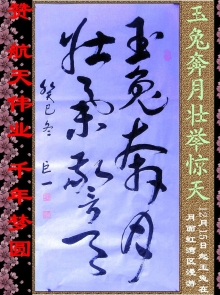 玉兔奔月壮举惊天
12月15日起玉兔在
月面虹湾区漫游
玉兔奔月
壮举惊天
癸巳冬 巨一
赞 航天伟业 千年梦圆